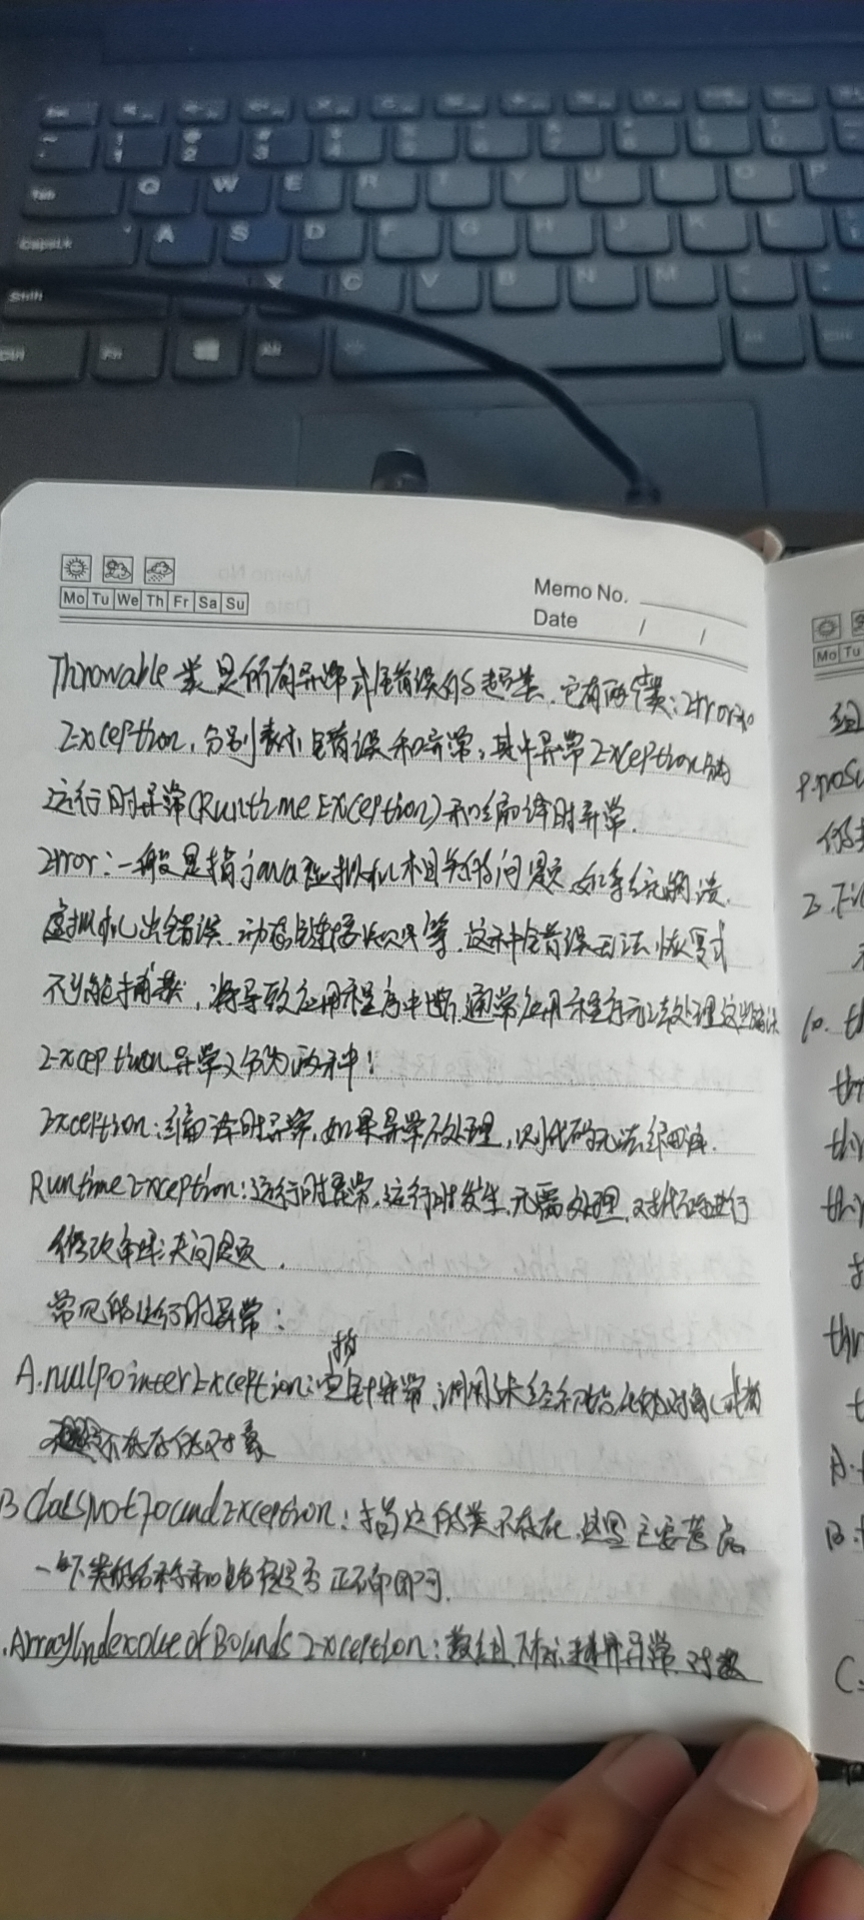 Q W E R T Y U I O P
A S D F G H J K L
X C V B N M
Memo No.
Mo Tu We Th Fr Sa Su
Date / /
Throwable 类是所有异常或错误的超类,它有两个子类:Error和
Exception,分别表示错误和异常,其中异常Exception分为
运行时异常(RuntimeException)和编译时异常.
Error:一般是指java虚拟机相关的问题,如系统崩溃.
虚拟机出错误、动态链接失败等,这种错误无法恢复或
不可能捕获,将导致应用程序中断,通常应用程序无法处理这些错误
Exception异常又分为两种!
Exception:编译时异常,如果异常不处理,则代码无法编译.
RuntimeException:运行时异常,运行时发生,无需处理,对代码进行
修改解决问题.
常见的运行时异常:
指
A.nullpointerException:空针异常,调用未经初始化的对象(或者
不存在的对象
B ClassNotFoundException:指定的类不存在,这里主要考虑
一下类的名称和路径是否正确即可.
.ArrayIndexOutOfBoundsException:数组下标越界异常,对数
Mo Tu
组
2.
10. th
thr
thr
A.
B.
C.